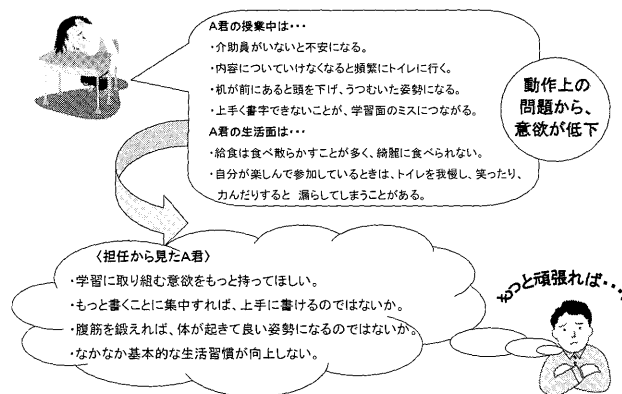 A君の授業中は・・・
・介助員がいないと不安になる。
・内容についていけなくなると頻繁にトイレに行く。
・机が前にあると頭を下げ、うつむいた姿勢になる。
・上手く書字できないことが、学習面のミスにつながる。
A君の生活面は・・・
・給食は食べ散らかすことが多く、綺麗に食べられない。
・自分が楽しんで参加しているときは、トイレを我慢し、笑ったり、
力んだりすると 漏らしてしまうことがある。
動作上の
問題から、
意欲が低下
〈担任から見たA君〉
・学習に取り組む意欲をもっと持ってほしい。
・もっと書くことに集中すれば、上手に書けるのではないか。
・腹筋を鍛えれば、体が起きて良い姿勢になるのではないか。
・なかなか基本的な生活習慣が向上しない。
もっと頑張れば・・・